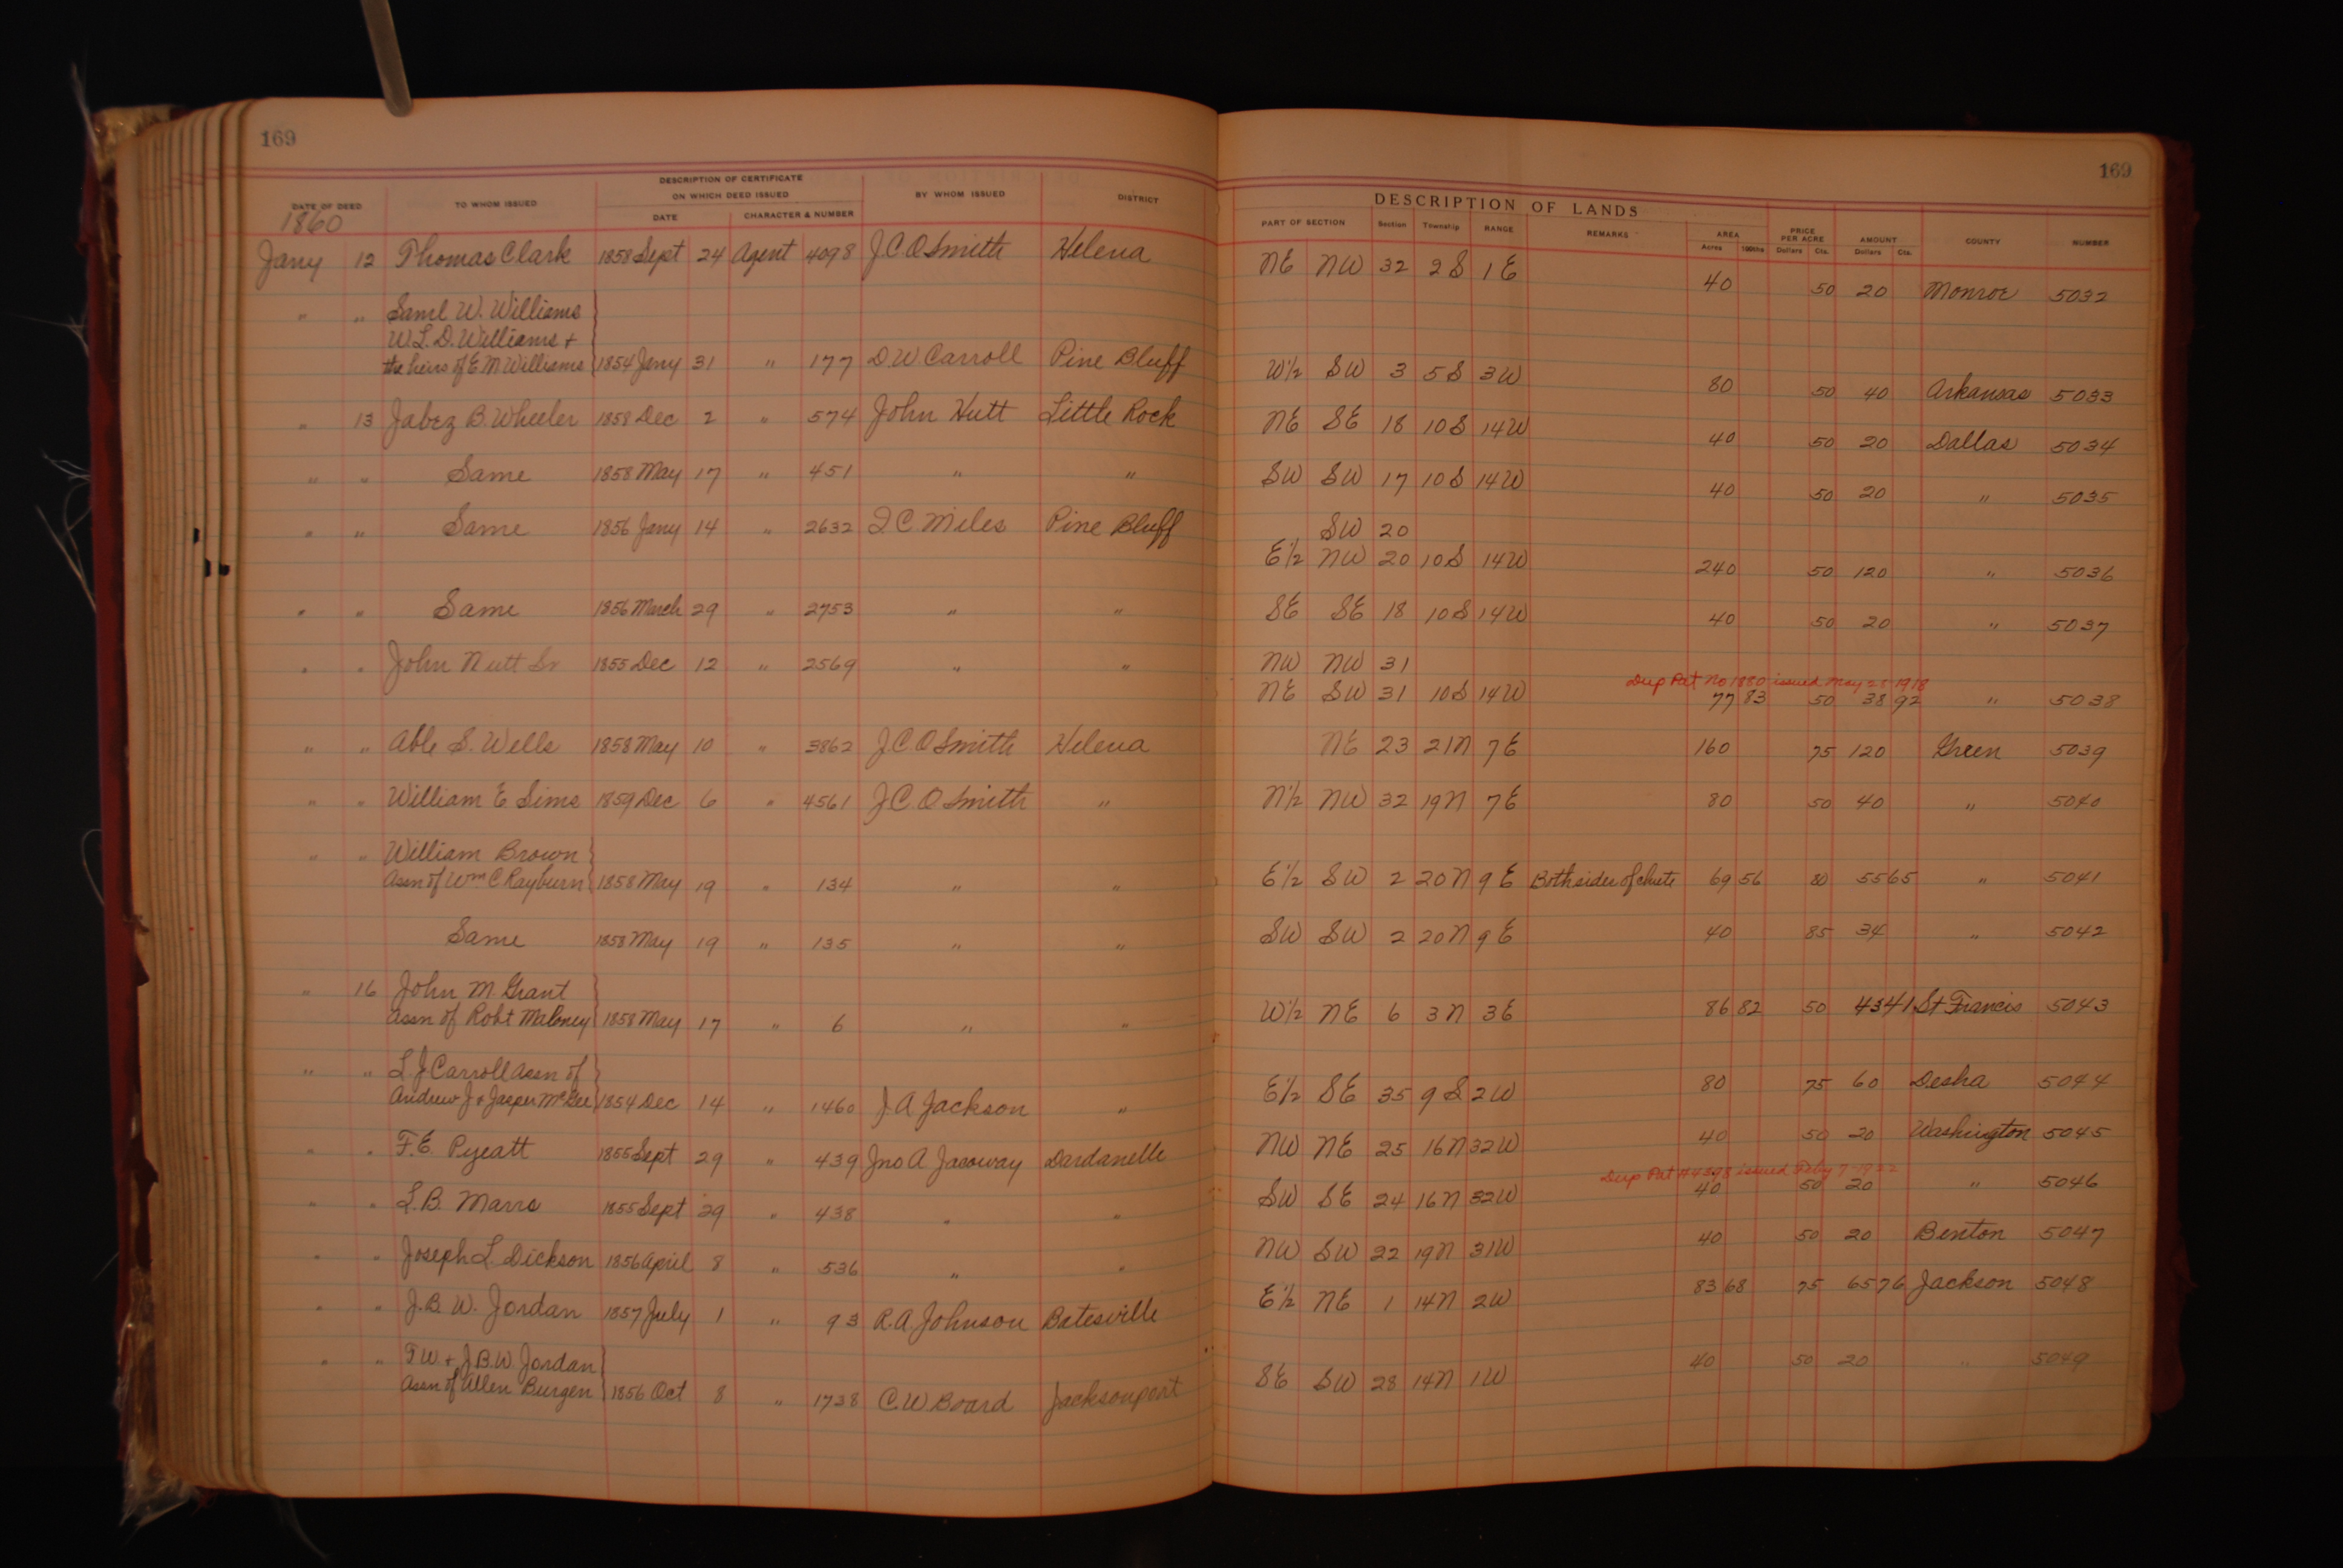 169
169
DATE OF DEED
TO WHOM ISSUED
DESCRIPTION OF CERTIFICATE
ON WHICH DEED ISSUED
DATE
CHARACTER & NUMBER
BY WHOM ISSUED
DISTRICT
DESCRIPTION OF LANDS
PART OF SECTION
Section
Township
RANGE
REMARKS
AREA
Acres 100ths
PRICE PER ACRE
Dollars Cts.
AMOUNT
Dollars Cts.
COUNTY
NUMBER
1860
Jany 12 Thomas Clark 1858 Sept 24 Agent 4098 J.C.O Smith Helena NE NW 32 2 S 1 E 40 50 20 Monroe 5032
" " Saml W. Williams
W.L.D. Williams +
the heirs of E M Williams 1854 Jany 31 " 177 D.W Carroll Pine Bluff W½ SW 3 5 S 3 W 80 50 40 Arkansas 5033
" 13 Jabez B. Wheeler 1858 Dec 2 " 574 John Hutt Little Rock NE SE 18 10 S 14 W 40 50 20 Dallas 5034
" " Same 1858 May 17 " 451 " " SW SW 17 10 S 14 W 40 50 20 " 5035
" " Same 1856 Jany 14 " 2632 I.C. Miles Pine Bluff SW 20
E½ NW 20 10 S 14 W 240 50 120 " 5036
" " Same 1856 March 29 " 2753 " " SE SE 18 10 S 14 W 40 50 20 " 5037
" " John Nutt Sr 1855 Dec 12 " 2569 " " NW NW 31
Dup Pat No 1880 issued May 28 1918
NE SW 31 10 S 14 W 77 83 50 38 92 " 5038
" " Able S. Wells 1858 May 10 " 3862 J.C.O Smith Helena NE 23 21 N 7 E 160 75 120 Green 5039
" " William E Sims 1859 Dec 6 " 4561 J.C.O Smith " N½ NW 32 19 N 7 E 80 50 40 " 5040
" " William Brown
Assn of Wm C Rayburn 1858 May 19 " 134 " " E½ SW 2 20 N 9 E Both sides of chute 69 56 80 55 65 " 5041
Same 1858 May 19 " 135 " " SW SW 2 20 N 9 E 40 85 34 " 5042
" 16 John M. Grant
Assn of Robt Maloney 1858 May 17 " 6 " " W½ NE 6 3 N 3 E 86 82 50 43 41 St Francis 5043
" " L J Carroll Assn of
Andrew J + Jasper McGee 1854 Dec 14 " 1460 J.A Jackson " E½ SE 35 9 S 2 W 80 75 60 Desha 5044
" " F.E. Pyeatt 1855 Sept 29 " 439 Jno A Jacoway Dardanelle NW NE 25 16 N 32 W 40 50 20 Washington 5045
Dup Pat # 4398 issued Feby 7-1922
" " L.B. Marrs 1855 Sept 29 " 438 " " SW SE 24 16 N 32 W 40 50 20 " 5046
" " Joseph L. Dickson 1856 April 8 " 536 " " NW SW 22 19 N 31 W 40 50 20 Benton 5047
" " J.B.W. Jordan 1857 July 1 " 93 R.A. Johnson Batesville E½ NE 1 14 N 2 W 83 68 75 65 76 Jackson 5048
" " T W + J.B.W Jordan
Assn of Allen Burgen 1856 Oct 8 " 1738 C.W Board Jacksonport SE SW 28 14 N 1 W 40 50 20 " 5049